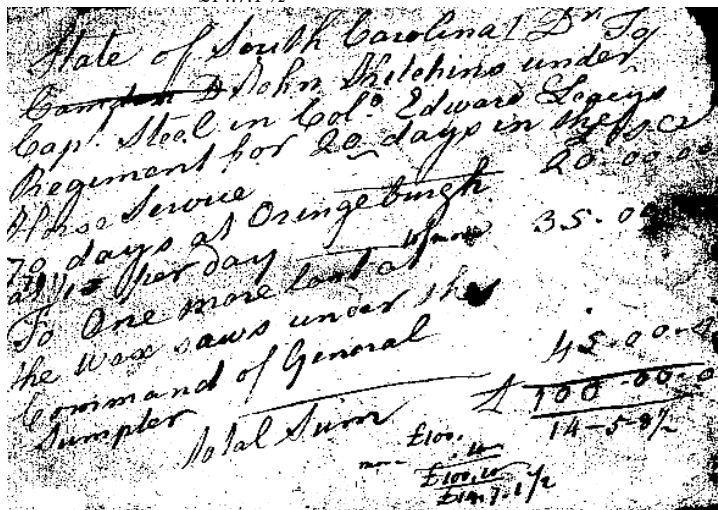 State of South Carolina Dr To
Camden D John Hitchins under
Capt. Steel in Colo. Edward Laceys
Regiment for 20 days in the
Horse Service 20.00.00
70 days at Orangeburgh
at 10/ per day 35.00
To One more lost at
the wax saws under the
Command of General 45.00.0
Sumpter
Total Sum £ 100.00.0
14-5-8½
£100.
£100.10
£14.7.1½